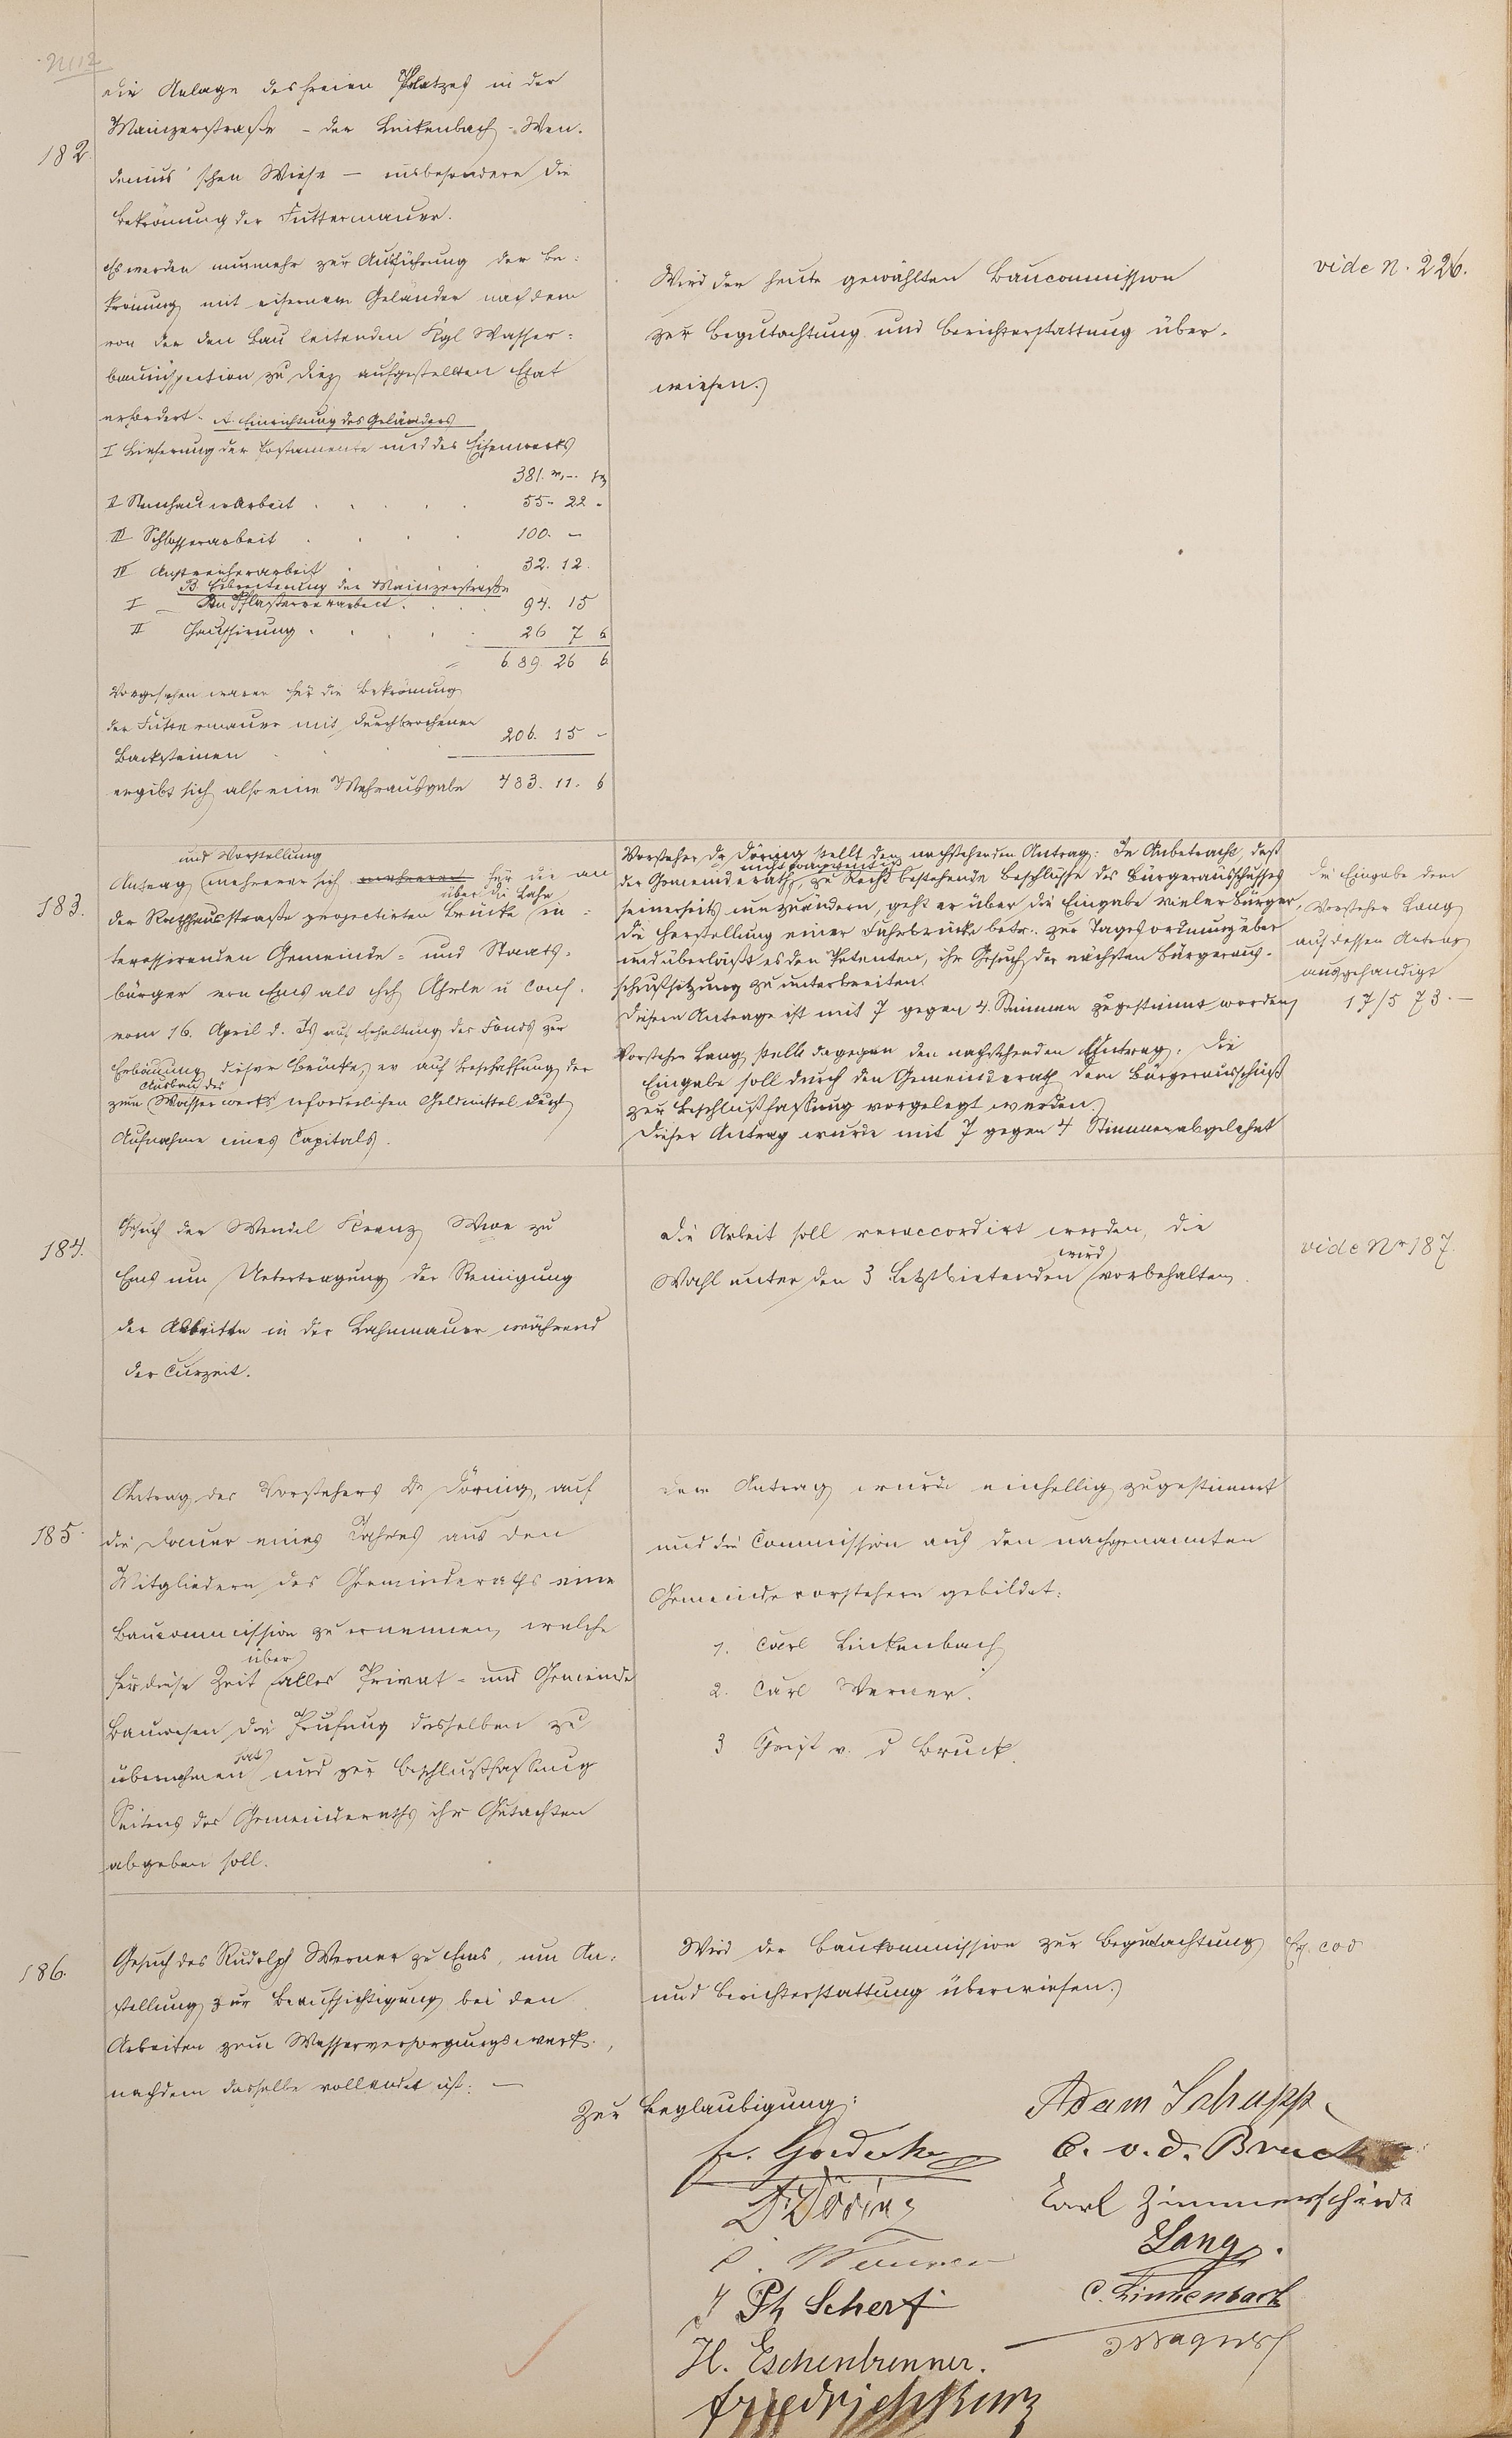 182.
die Anlage des freien Platzes in der
Mainzerstraße - der Linkenbach - Wen-
denius'schen Wiese — insbesondere die
Bekrönung der Futtermauer.
Es werden nunmehr zur Ausführung der Be-
krönung mit eisernem Geländer nach dem
von der den Bau leitenden Kgl Wasser-
bauinspection zu Diez aufgestellten Etat
erfordert. A. Einrichtung des Geländers
I Lieferung der Postamente und des Eisenwerks
381.
II Steinhauerarbeit . . . . 55. 22 -
III Schlosserarbeit . . . . 100. -
IV Anstreicherarbeit . . . 32. 12.
B. Verbreiterung der Mainzerstraße
I An Pflastererarbeit . . . 94. 15
II Chaussirung . . . . 26 7 6
689. 26 6
Vorgesehen waren für die Bekrönung
der Futtermauer mit durchbrochenen
Backsteinen . . . 206. 15 -
ergibt sich also eine Mehrausgabe 483. 11. 6
Wird der heute gewählten Baucommission
zur Begutachtung und Berichterstattung über-
wiesen.
vide N. 226.
183.
und Vorstellung
Antrag mehrerer sich für die an
über die Lahn
der Rathhausstraße projectirten Brücke in-
teressirenden Gemeinde- und Staats-
bürger von Ems als Chs Ahrle u Cons.
vom 16. April d. Js auf Erhaltung des Fonds zur
Erbauung dieser Brücke, er auf Beschaffung der
Ausbau des
zum Wasserwerks erforderlichen Geldmittel durch
Aufnahme eines Capitals.
Vorsteher Dr Döring stellt den nachstehenden Antrag: In Anbetracht, daß
nicht competent ist
der Gemeinderath, zu Recht bestehende Beschlüsse des Bürgerausschusses
seinerseits umzuändern, geht er über die Eingabe vieler Bürger,
die Herstellung einer Fahrbrücke betr. zur Tagesordnung über
und überläßt es den Petenten, ihr Gesuch der nächsten Bürgeraus-
schußsitzung zu unterbreiten.
Diesem Antrage ist mit 7 gegen 4 Stimmen zugestimmt worden
Vorsteher Lang stellt dagegen den nachstehenden Antrag. Die
Eingabe soll durch den Gemeinderath dem Bürgerausschuß
zur Beschlußfassung vorgelegt werden.
Dieser Antrag wurde mit 7 gegen 4 Stimmen abgelehnt
Die Eingabe dem
Vorsteher Lang
auf dessen Antrag
ausgehändigt
17/5 73.—
184.
Gesuch der Wendel Kranz Wwe zu
Ems um Uebertragung der Reinigung
der Abtritte in der Lahnmauer während
der Curzeit.
Die Arbeit soll veraccordirt werden, die
wird
Wahl unter den 3 Letztbietenden vorbehalten.
vide Nr 187.
185.
Antrag des Vorstehers Dr Döring, auf
die Dauer eines Jahres aus den
Mitgliedern des Gemeinderaths eine
Baucommission zu ernennen, welche
über
für diese Zeit alles Privat- und Gemeinde
Bauwesen die Prüfung desselben zu
hat
übernehmen und zur Beschlußfassung
Seitens des Gemeinderaths ihr Gutachten
abgeben soll.
dem Antrag wurde einhellig zugestimmt
und die Commission aus den nachgenannten
Gemeindevorstehern gebildet:
1. Carl Linkenbach
2. Carl Werner.
3 Christ v. d Bruck.
186.
Gesuch des Rudolph Werner zu Ems, um An-
stellung zur Beaufsichtigung bei den
Arbeiten zum Wasserversorgungswerk,
nachdem dasselbe vollendet ist. —
Wird der Baukommission zur Begutachtung
und Berichterstattung überwiesen.
Zur Beglaubigung:
Dr Döring
J Ph Scherf
H. Eschenbrenner.
Friedrich Kurz
Adam Schupp
C. v. d. Bruck
Carl Zimmerscheid
Lang.
C. Linkenbach
J Wagner